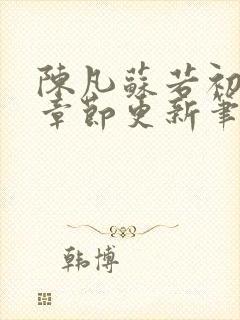 陳凡蘇若初
章節更新筆
韩博